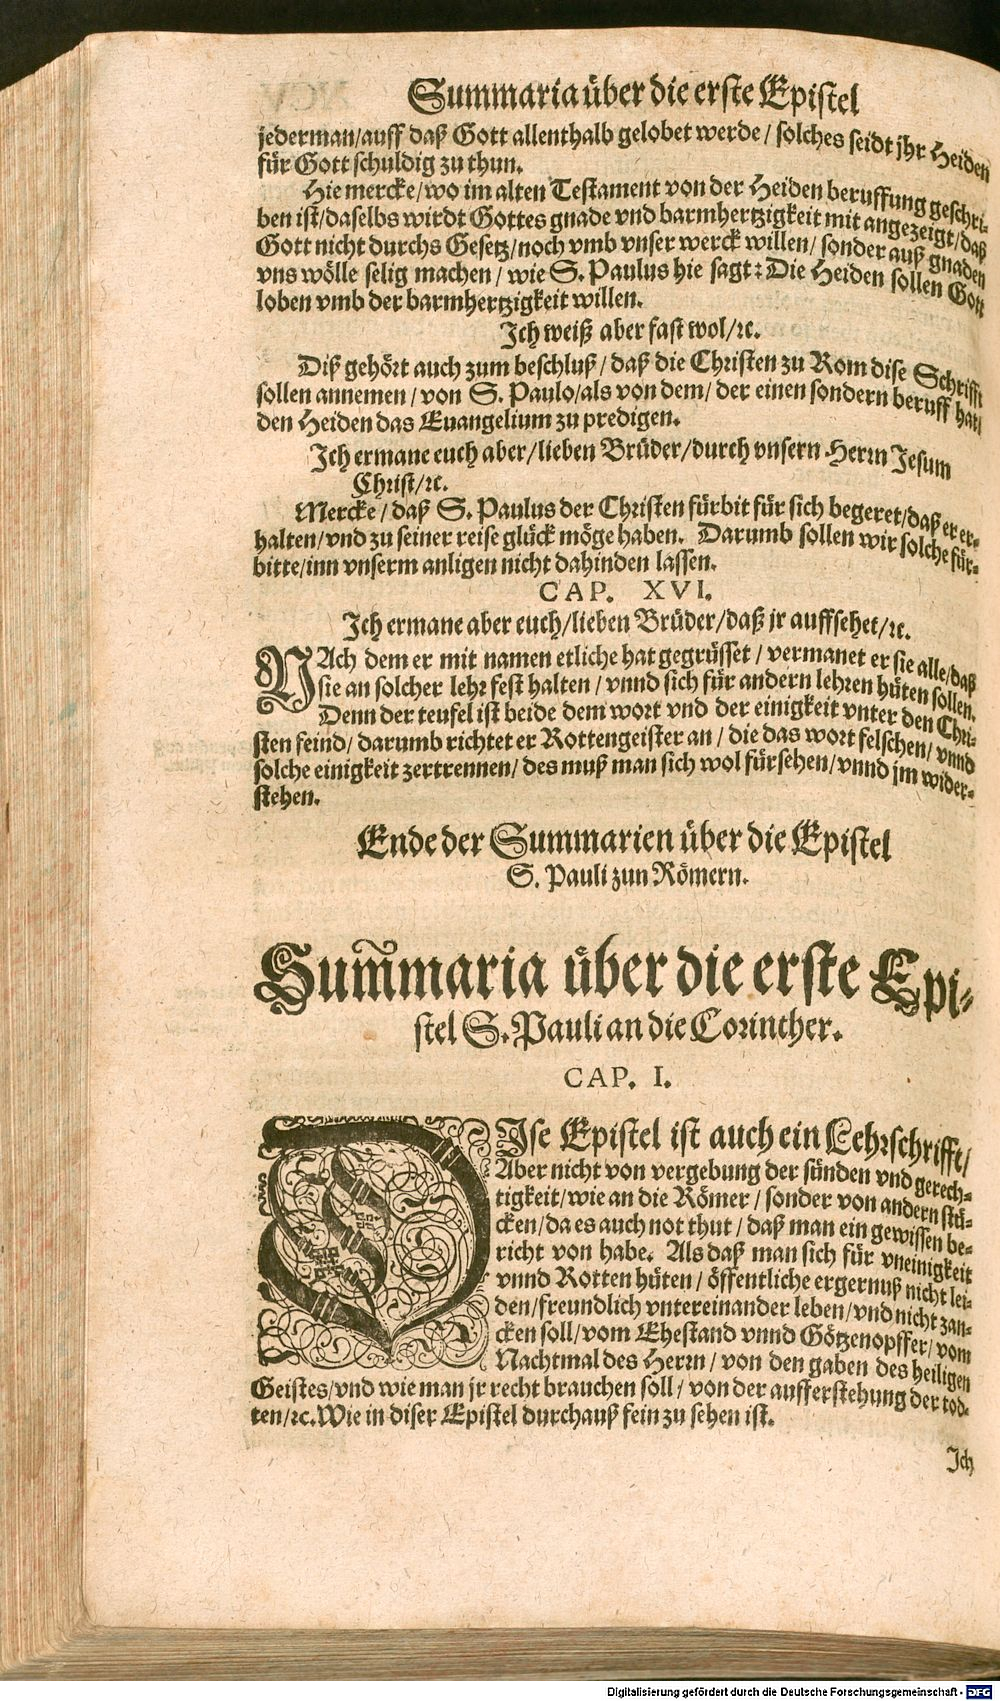 Summaria über die erste Epistel
jederman/auff daß Gott allenthalb gelobet werde / solches seidt jhr Heiden
für Gott schuldig zu thun.
Hie mercke/wo im alten Testament von der Heiden beruffung geschri-
ben ist/daselbs wirdt Gottes gnade vnd barmhertzigkeit mit angezeigt/daß
Gott nicht durchs Gesetz/noch vmb vnser werck willen/ sonder auß gnaden
vns wölle selig machen / wie S. Paulus hie sagt: Die Heiden sollen Gott
loben vmb der barmhertzigkeit willen.
Ich weiß aber fast wol/ꝛc.
Diß gehört auch zum beschluß / daß die Christen zu Rom dise Schrifft
sollen annemen / von S. Paulo/als von dem/ der einen sondern beruff hat/
den Heiden das Euangelium zu predigen.
Ich ermane euch aber/lieben Brüder/durch vnsern Herrn Jesum
Christ/ꝛc.
Mercke / daß S. Paulus der Christen fürbit für sich begeret/daß er er-
halten/vnd zu seiner reise glück möge haben. Darumb sollen wir solche für-
bitte/inn vnserm anligen nicht dahinden lassen.
CAP. XVI.
Ich ermane aber euch/lieben Brüder/daß jr auffsehet/ꝛc.
NAch dem er mit namen etliche hat gegrüsset / vermanet er sie alle/daß
sie an solcher lehr fest halten / vnnd sich für andern lehren hüten sollen.
Denn der teufel ist beide dem wort vnd der einigkeit vnter den Chri-
sten feind/ darumb richtet er Rottengeister an / die das wort felschen/ vnnd
solche einigkeit zertrennen/ des muß man sich wol fürsehen/vnnd jm wider-
stehen.
Ende der Summarien über die Epistel
S. Pauli zun Römern.
Sum̃maria über die erste Epi-
stel S. Pauli an die Corinther.
CAP. I.
DIse Epistel ist auch ein Lehrschrifft/
Aber nicht von vergebung der sünden vnd gerech-
tigkeit/wie an die Römer / sonder von andern stü-
cken/da es auch not thut / daß man ein gewissen be-
richt von habe. Als daß man sich für vneinigkeit
vnnd Rotten hüten / öffentliche ergernuß nicht lei-
den/freundlich vntereinander leben/vnd nicht zan-
cken soll/vom Ehestand vnnd Götzenopffer/ vom
Nachtmal des Herrn / von den gaben des heiligen
Geistes/vnd wie man jr recht brauchen soll / von der aufferstehung der tod-
ten/ꝛc.Wie in diser Epistel durchauß fein zu sehen ist.
Ich
Digitalisierung gefördert durch die Deutsche Forschungsgemeinschaft - DFG